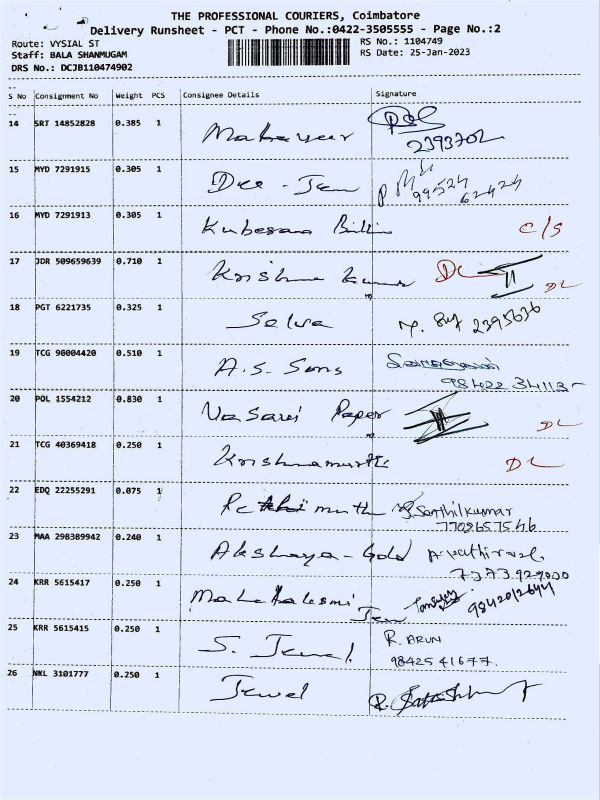 THE PROFESSIONAL COURIERS, Coimbatore
Delivery Runsheet - PCT - Phone No.:0422-3505555 - Page No.:2
Route: VYSIAL ST
RS No.: 1104749
Staff: BALA SHANMUGAM
RS Date: 25-Jan-2023
DRS No.: DCJB110474902
S No Consignment No Weight PCS Consignee Details Signature
14 SRT 14852828 0.385 1 Mahaveer
2393702
15 MYD 7291915 0.305 1 Dee - Jem
99524
62424
16 MYD 7291913 0.305 1 Kuberaa C/S
17 JDR 509659639 0.710 1 Krishna Kumar DL DL
18 PGT 6221735 0.325 1 Selva 2395636
19 TCG 90004420 0.510 1 A.S. Sons
98422 34113
20 POL 1554212 0.830 1 Vasavi Paper DL
21 TCG 40369418 0.250 1 Krishnamurthi DL
22 EDQ 22255291 0.075 1 muth Senthilkumar
7708657546
23 MAA 298389942 0.240 1 Akshaya - Gold A.vathiravel
7373929000
24 KRR 5615417 0.250 1 Mahalakshmi Jem 9842012644
25 KRR 5615415 0.250 1 S. Jewel R. ARUN
98425 41677.
26 NKL 3101777 0.250 1 Jewel R.